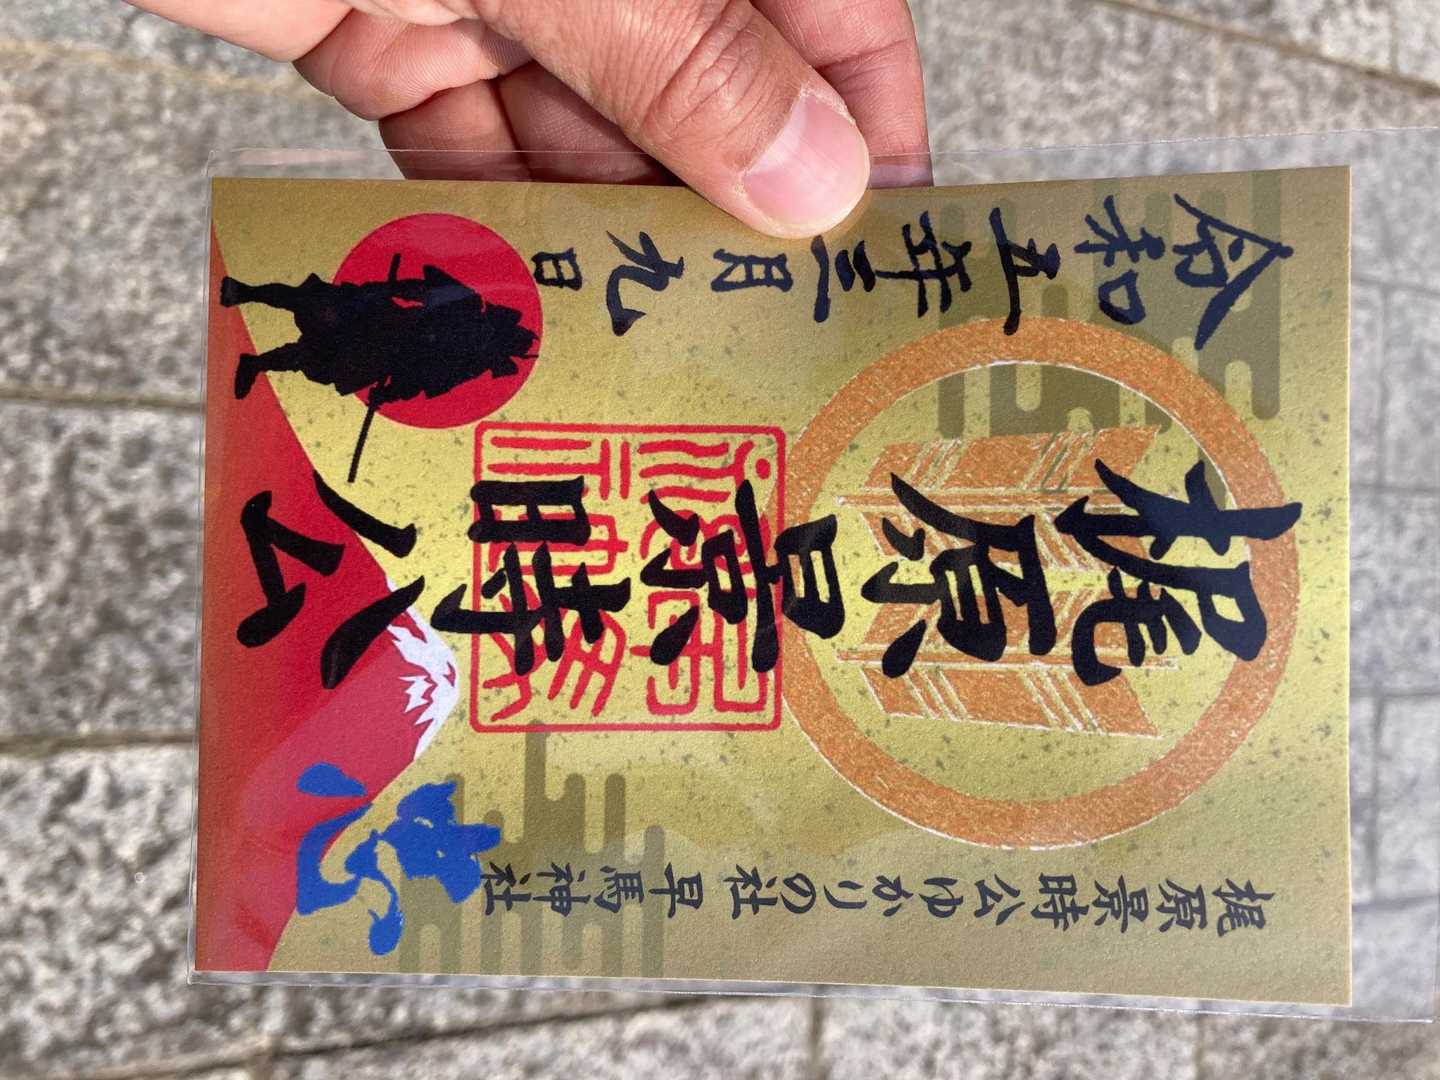 梶原景時公ゆかりの社 早馬神社
梶原景時公
令和五年三月九日
忠